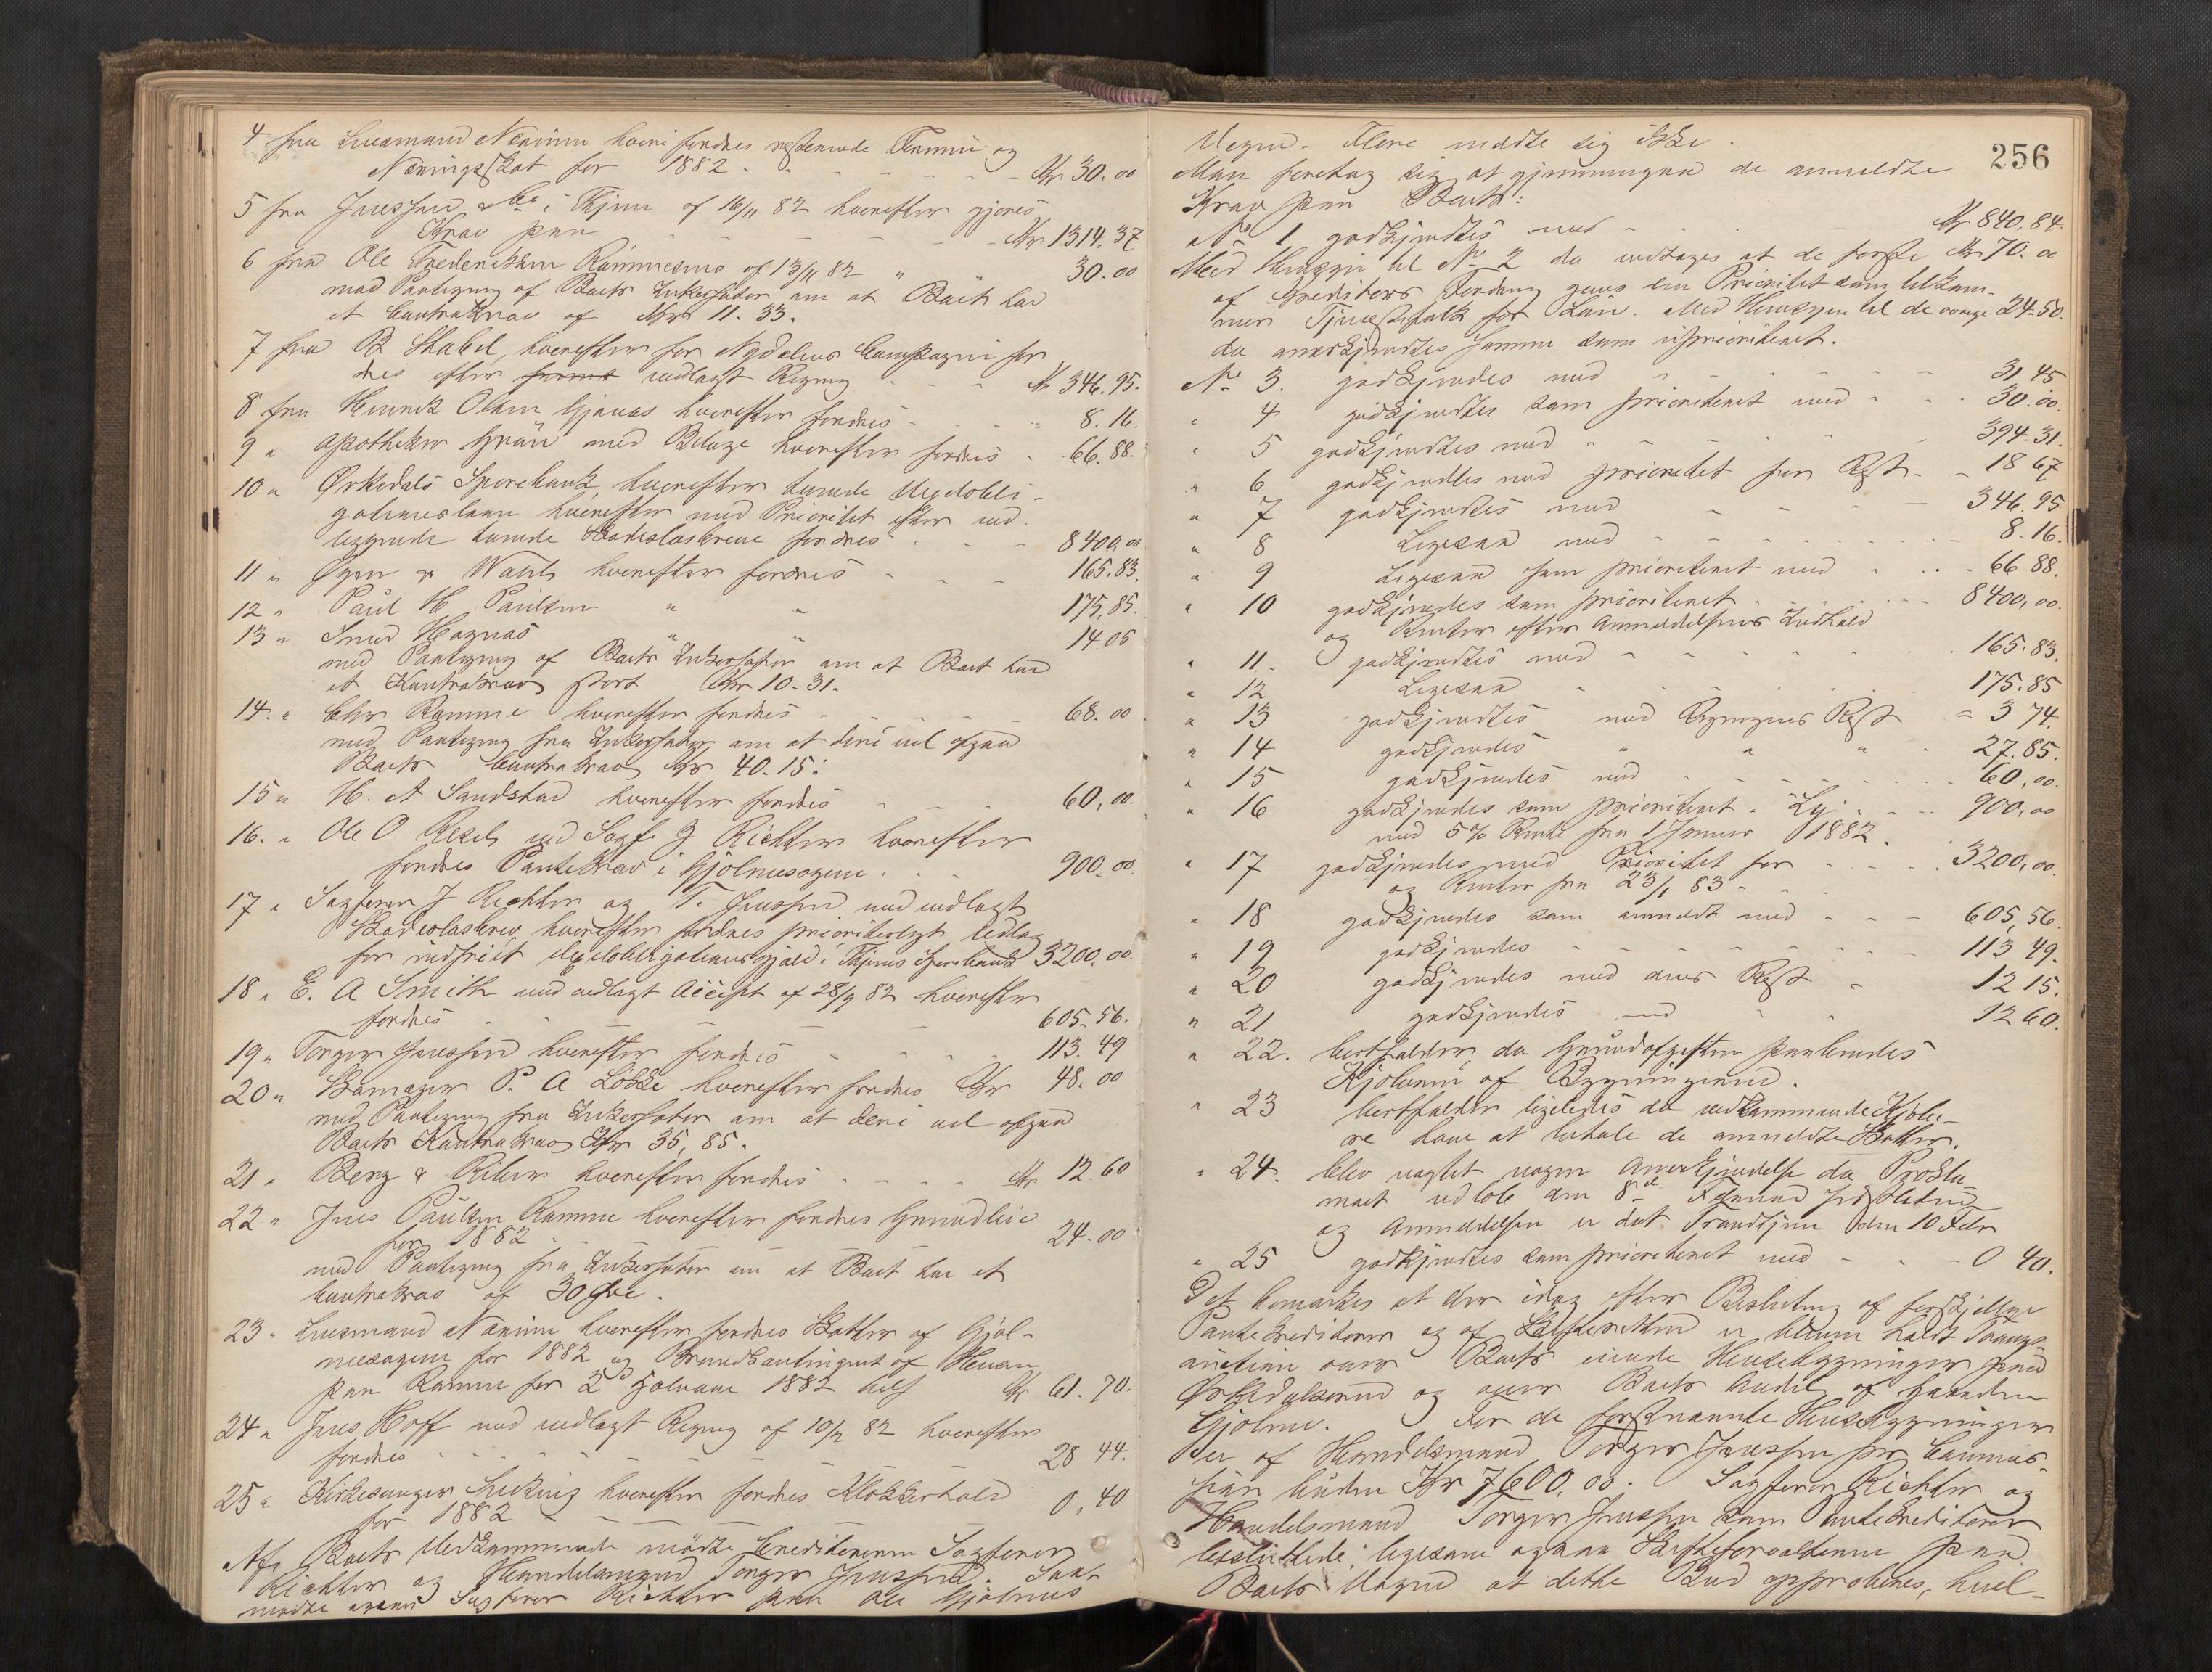 4 fra Lensmand Nærum hvori fordres resterende Termin og
Næringsskat for 1882 - Kr 30.00
5 fra Jenssen & Co i Thjem af 16/11 82 hvorefter gjøres
Krav paa - Kr 1314.37
6 fra Ole Frederiksen Rømmesmo af 13/11 82 " " 30.00
med Paategning af Boets Inkassator om at Boet har
et Contrakrav af Kr 11.33.
7 fra B Stabel, hvorefter for Nydalens Compagni for
dres efter vedlagt Regning - Kr 346.95.
8 fra Henrik Olsen hvorefter fordres - 8.16.
9 " Apotheker Grøn med Bilage hvorefter fordres - 66.88.
10 " Ørkedals Sparebank, hvorefter tvende Vexelobli-
gationslaan hvorefter med Prioritet efter ved
liggende tvende Skadesløsbreve fordres - 8400,00
11 " Øyen & Wahl hvorefter fordres - 165.83.
12 " Paul H Paulsen " " 175,85.
13 " Smed Hognæs " " 14.05
med Paategning af Boets Inkassator om at Boet har
et Kontrakrav stort Kr 10.31.
14. " Chr Romme hvorefter fordres - 68.00
med Paategning fra Inkassator om at deri vil afgaa
Boets Contrakrav Kr 40.15.
15 " H. A Sandstad hvorefter fordres - 60,00.
16. " Ole O ved Sagf J Richter hvorefter
fordres Pantekrav i Gjølmesøgene - 900,00.
17 " Sagfører J Richter og T. Jenssen med vedlagt
Skadesløsbrev, hvorefter fordres prioriteret
for indfriet Vexelobligationsgjæld i Thjems Sparebank 3200,00.
18 " E. A Smith med vedlagt Accept af 28/9 82 hvorefter
fordres - 605.56.
19 " Torger Jenssen hvorefter fordres - 113.49
20 " Skomager P. A Løkke hvorefter fordres Kr 48.00
med Paategning fra Inkassator om at deri vil afgaa
Boets Kontrakrav Kr 35,85.
21 " Berg & hvorefter fordres - Kr 12.60
22 " Jens Paulsen Romme hvorefter fordres Grundleie
for 1882 - 24.00
med Paategning fra Inkassator om at Boet har et
Contrakrav af 30 Øre.
23 " Lensmand Nærum hvorefter fordres Skatter af Gjøl-
mesøgene for 1882 og Brandkontingent af Husene
paa Romme for 2 Halvaar 1882 Kr 61.70.
24 " Jens Hoff med vedlagt Regning af 10/2 82 hvorefter
fordres - 28 44.
25 " Kirkesanger hvorefter fordres Klokkertold
for 1882 - 0,40
Af Boets Vedkommende mødte Creditorerne Sagfører
Richter og Handelsmand Torger Jenssen.
mødte ogsaa Sagfører Richter paa Ole Gjølmes
256
Vegne. Flere mødte sig ikke.
Man foretog sig at gjennemgaa de anmeldte
Krav paa Boet:
No 1 godkjendtes med - Kr 840,84.
Med Hensyn til No 2 da vedtages at de første Kr 70.00
af Creditors Fordring gives en Prioritet som tilkom-
mer Tjenestefolk for Løn. Med Hensyn til de øvrige 24.50.
da anerkjendtes samme som uprioriteret.
No 3. godkjendes med - 31 45
" 4 godkjendtes som prioriteret med - 30.00.
" 5 godkjendtes med - 394.31.
" 6 godkjendtes med prioritet for Rest - 18 67
" 7 godkjendtes med - 346.95
" 8 Ligesaa med - 8.16.
" 9 Ligesaa som prioriteret med - 66 88.
" 10 godkjendes som prioriteret - 8400,00.
og Renter efter Anmeldelsens Indhold
" 11. godkjendtes med - 165.83.
" 12 Ligesaa - 175.85
" 13 godkjendtes med Regningens Rest = 3 74.
" 14 godkjendes " " " 27.85.
" 15 godkjendes med - 60,00.
" 16 godkjendes som prioriteret - 900,00
med 5% Rente fra 1 Januar 1882.
" 17 godkjendes med Prioritet for - 3200,00.
og Renter fra 23/1 83 -
" 18 godkjendes som anmeldt med - 605,56.
" 19 godkjendes - 113 49.
" 20 godkjendes med deres Rest - 12 15.
" 21 godkjendes med - 12 60.
" 22. bortfalder da Grundafgiften paahviler
Kjøberen af Bygningerne.
" 23 bortfalder ligeledes da vedkommende Kjøbe-
re have at betale de anmeldte Skatter.
" 24. blev nægtet nogen Anerkjendelse da Prokla
maet udløb den 8de Februar
og Anmeldelsen er dat. Trondhjem den 10 Febr
" 25 godkjendtes som prioriteret med - 0 40.
Det bemærkes at der idag efter Beslutning af forskjellige
Pantekreditorer og af Skifteretten er bleven holdt Tvangs-
auktion over Boets eiende Husebygninger paa
Ørkedalsøren og over Boets Andel af Gaarden
Gjølme. For de førstnævnte Husebygninger
blev af Handelsmand Torger Jenssen pr Commis-
sion buden Kr 7600,00. Sagfører Richter og
Handelsmand Torger Jenssen som Pantekreditorer
besluttede, ligesom ogsaa Skifteforvalteren paa
Boets Vegne at dette Bud approberes, hvil-